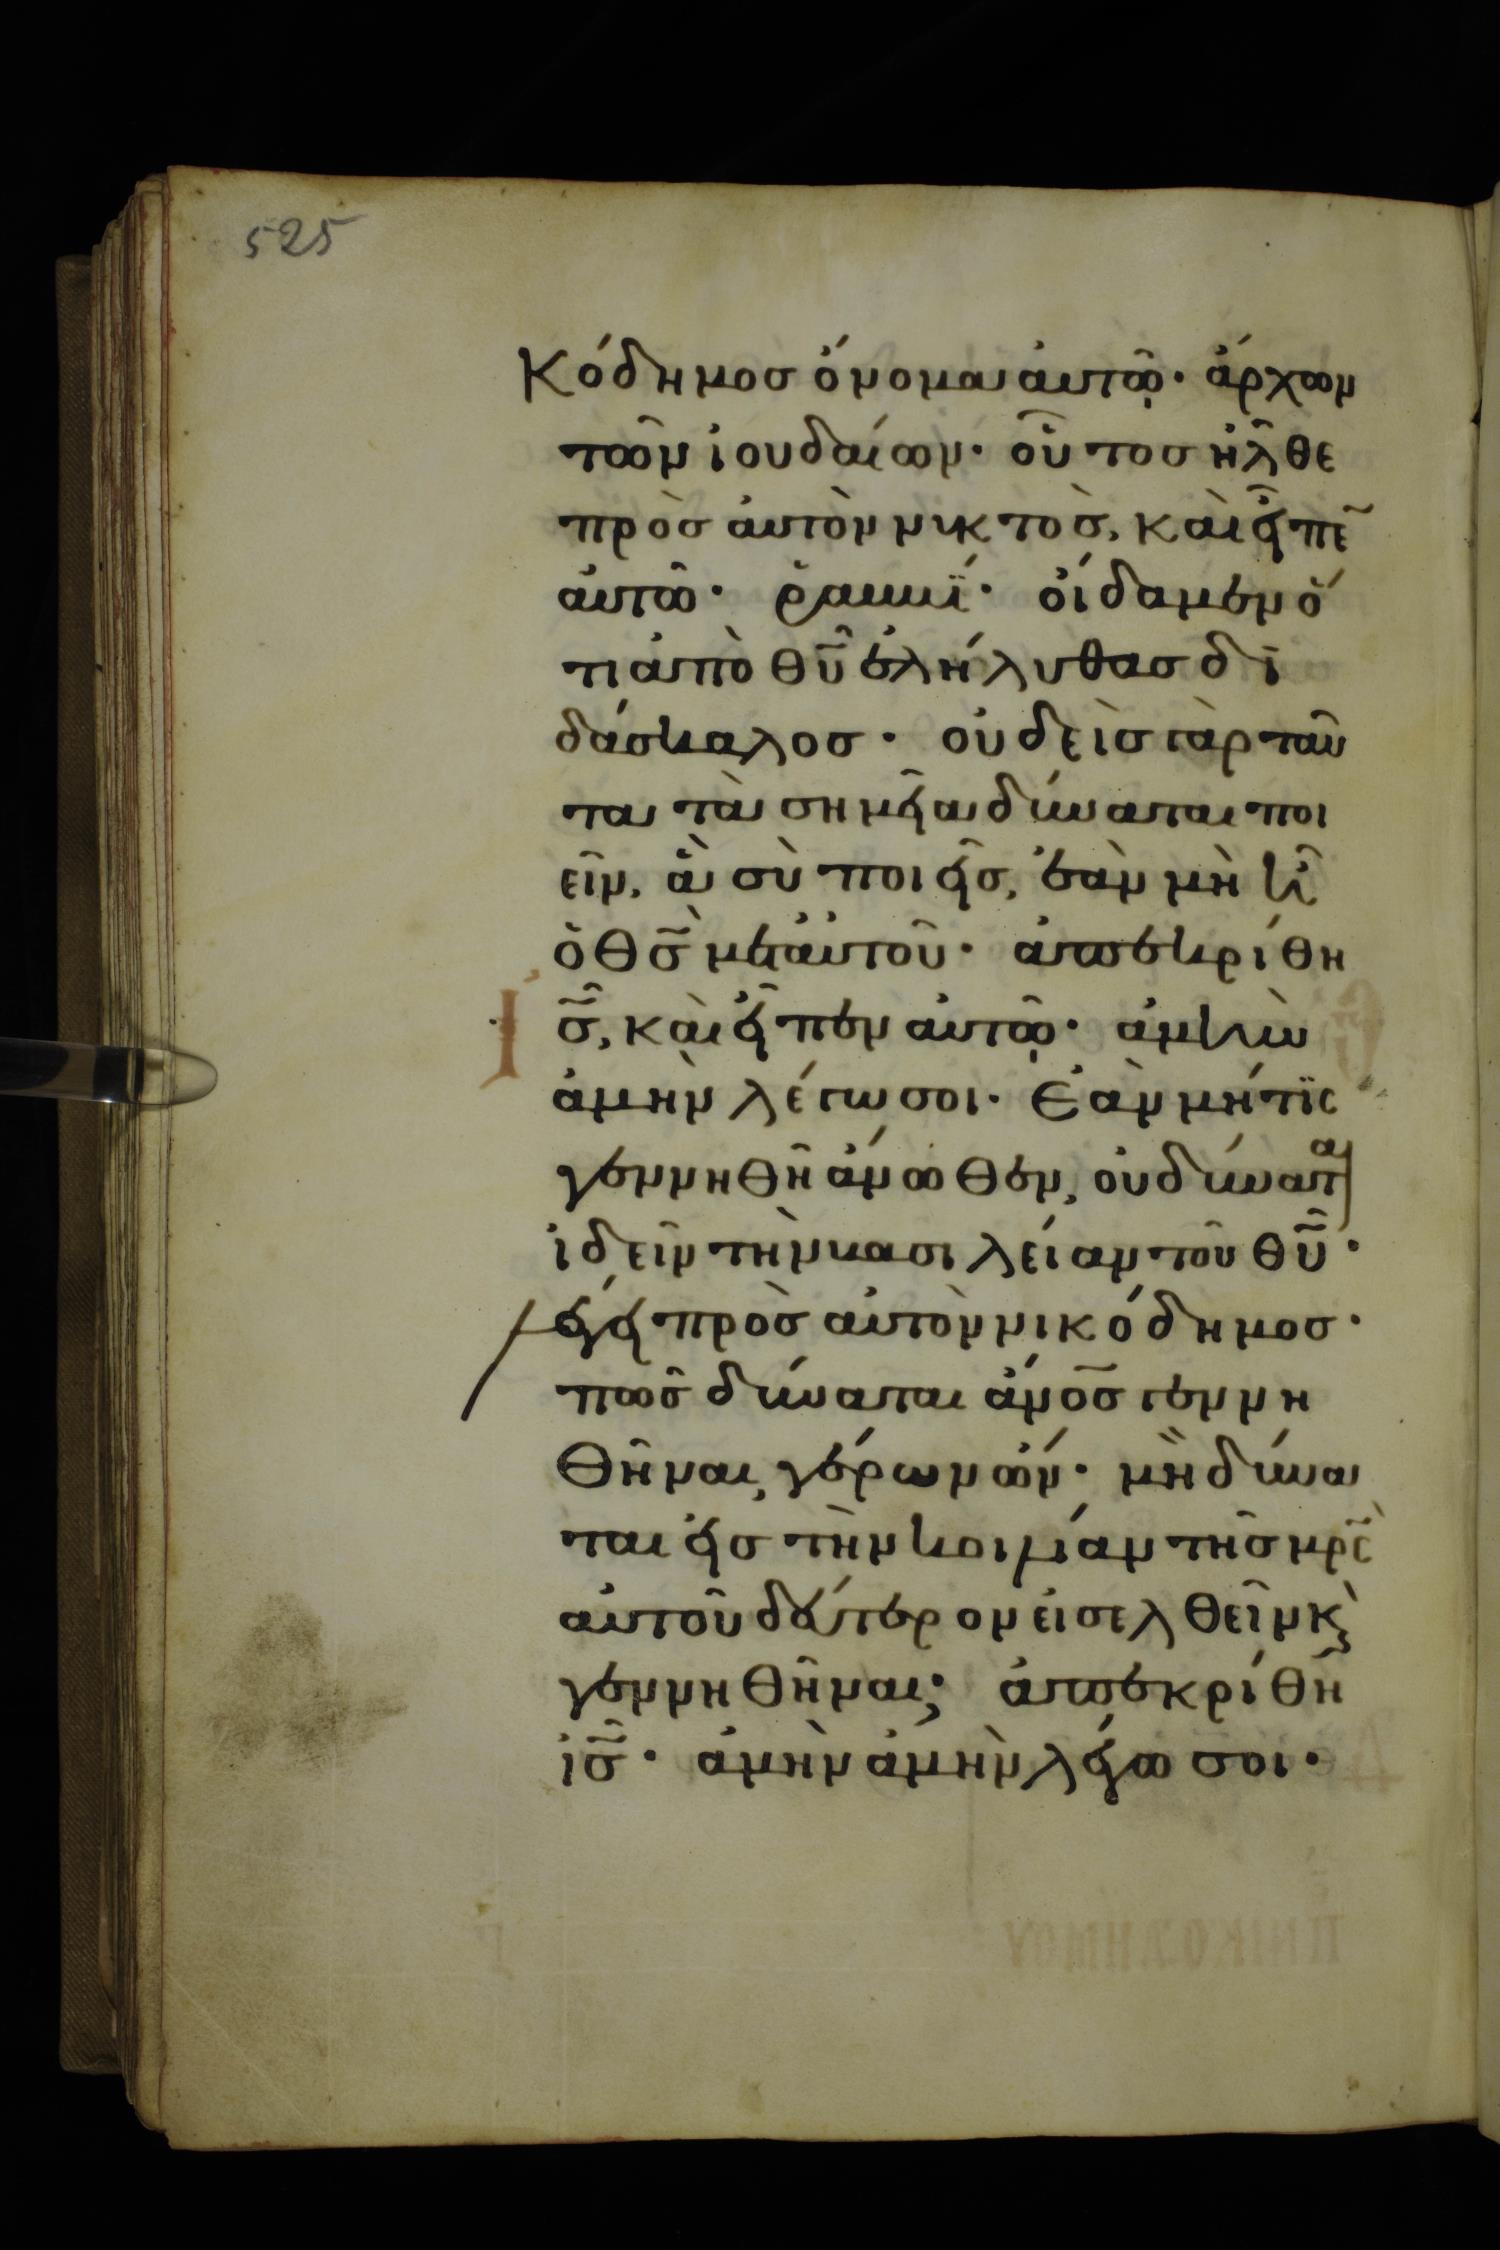 525
Κόδημοσ ὄνομα ἀυτῶ· ἄρχων
τῶν ἰουδαίων· οὗτοσ ἦλθε
πρὸσ ἀυτὸν νυκτοσ, καὶ εἶπε
ἀυτῶ· ῥαββί· οἴδαμεν ὅ
τι ἀπὸ θυ ἐλήλυθασ δι
δάσκαλοσ· οὐδεὶσ γὰρ ταῦ
τα τὰ σημεῖα δύναται ποι
εῖν, ἃ σὺ ποιεῖσ, ἐὰν μὴ ἦ
ὁ θσ μετ ἀυτοῦ· ἀπεκρίθη
Ισ, καὶ εἶπεν ἀυτῶ· ἀμὴν
ἀμὴν λέγω σοι· Εὰν μή τισ
γεννηθῆ ἄνωθεν, οὐ δύναται
ἰδεῖν τὴν βασιλείαν τοῦ θυ·
λέγει πρὸσ ἀυτὸν νικόδημοσ·
πῶσ δύναται ἄνοσ γεννη
θῆναι, γέρων ὤν· μὴ δύνα
ται εἰσ τὴν κοιλίαν τῆσ μρσ
ἀυτοῦ δεύτερον εἰσελθεῖν κὶ
γεννηθῆναι; ἀπεκρίθη
ἰσ· ἀμὴν ἀμὴν λέγω σοι·